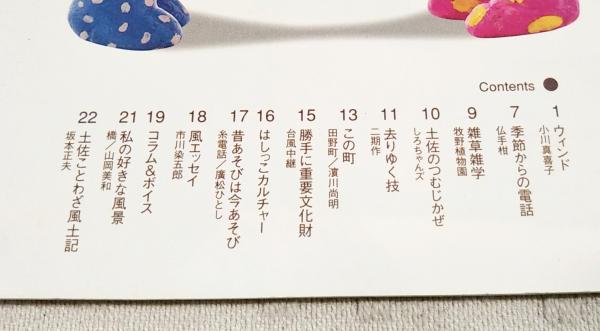 Contents ●
1
ウィンド
小川真喜子
7
季節からの電話
仏手柑
9
雑草雑学
牧野植物園
10
土佐のつむじかぜ
しろちゃんズ
11
去りゆく技
二期作
13
この町
田野町／濵川尚明
15
勝手に重要文化財
台風中継
16
はしっこカルチャー
17
昔あそびは今あそび
糸電話／廣松ひとし
18
風エッセイ
市川染五郎
19
コラム&ボイス
21
私の好きな風景
橋／山岡美和
22
土佐ことわざ風土記
坂本正夫